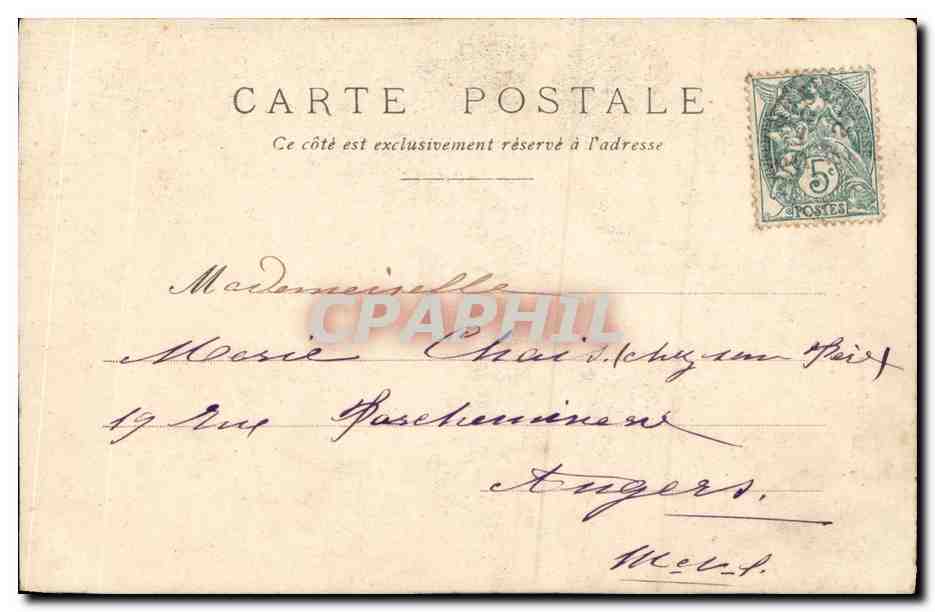 CARTE POSTALE
Ce côté est exclusivement réservé à l'adresse
5c
POSTES
Mademoiselle
CPAPHIL
Marie Chais (chez son Père)
19 Rue
Angers.
M et L.